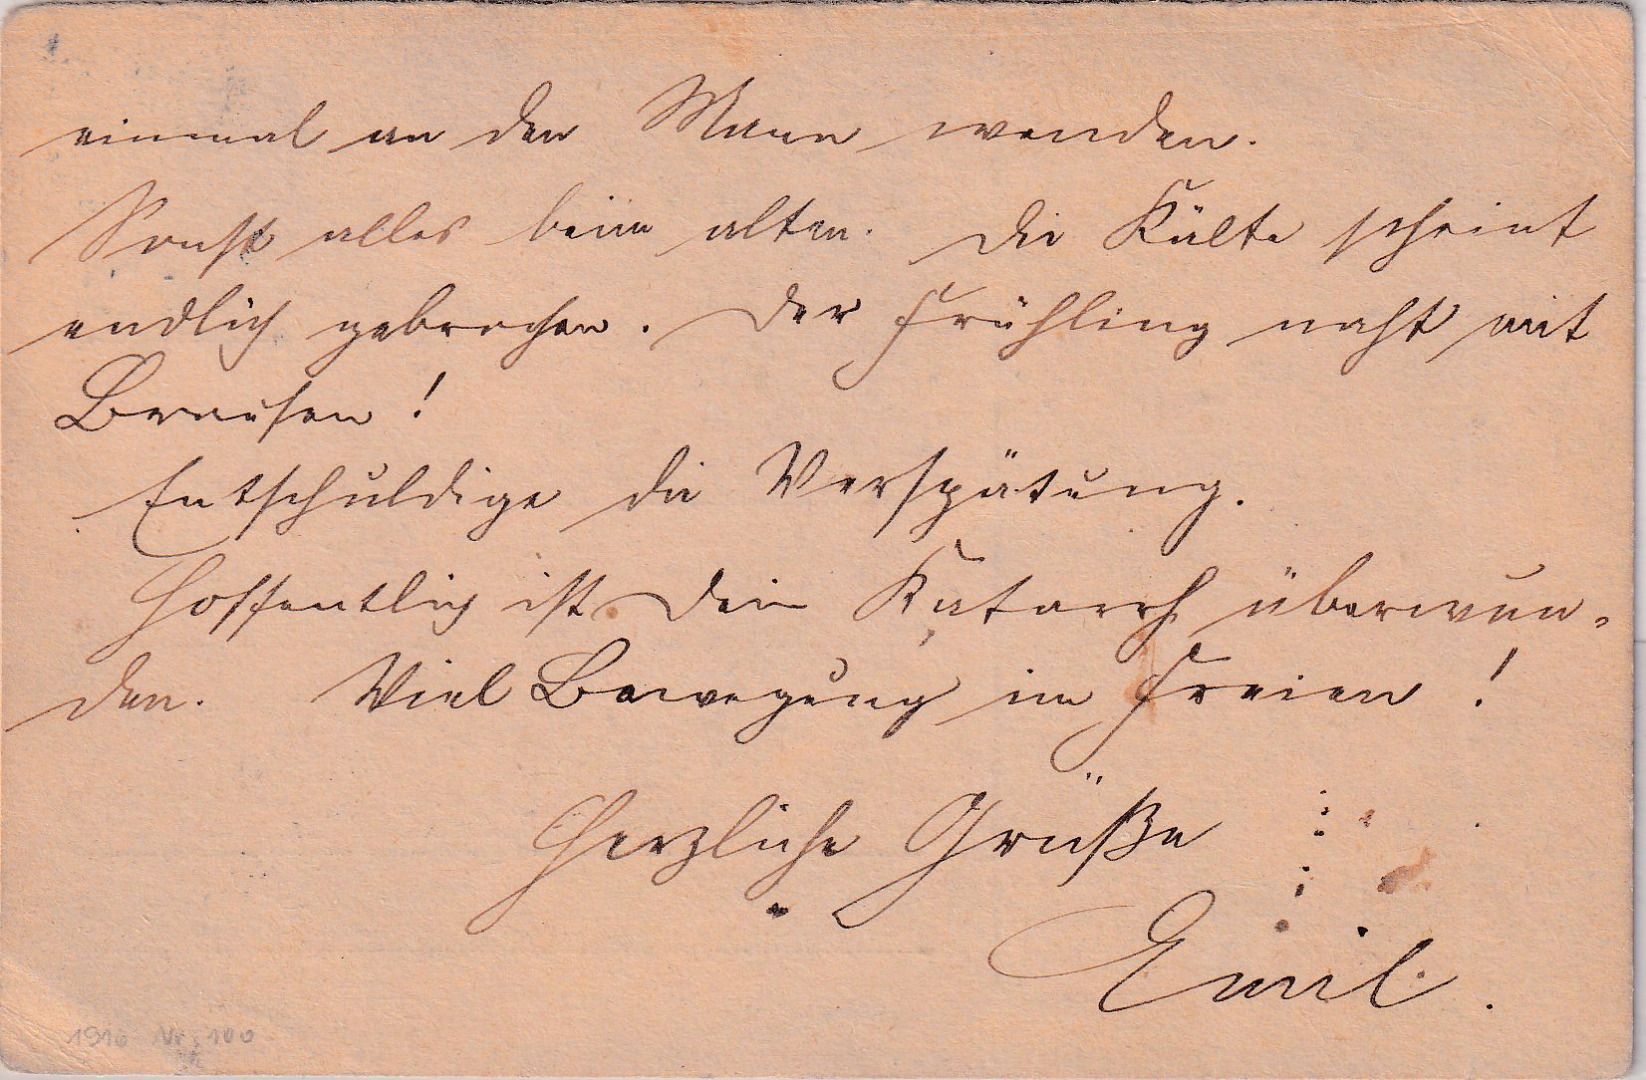 einmal an den Mann wenden.
Sonst alles beim alten. Die Kälte scheint
endlich gebrochen. Der Frühling naht mit
Brausen!
Entschuldige die Verspätung.
Hoffentlich ist Dein Katarrh überwun-
den. Viel Bewegung im Freien!
Herzliche Grüße
Emil.
1916 Nr. 100